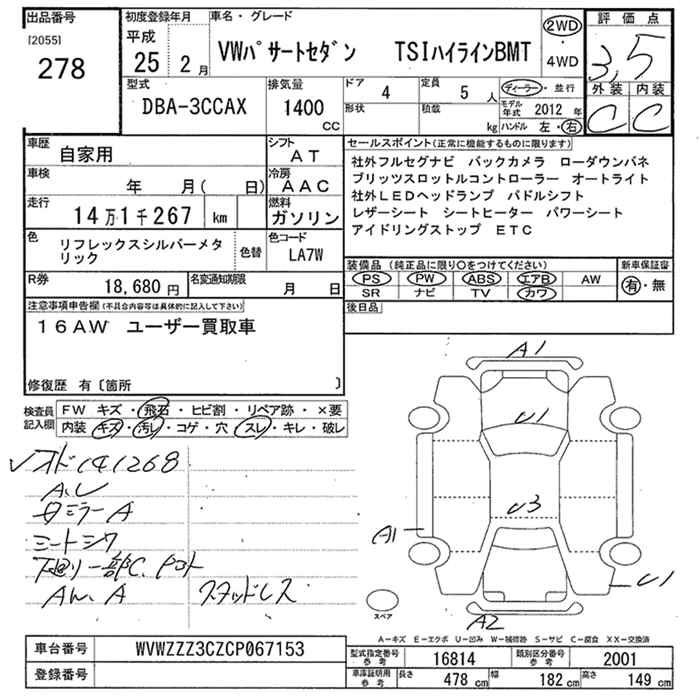 出品番号 初度登録年月 車名・グレード 評価点
[2055] 278
平成 25 2月
VWパサートセダン TSIハイラインBMT
2WD・4WD
3,5
型式 排気量 ドア 定員 ディーラー・並行 外装 内装
DBA-3CCAX 1400 CC 4 5人 C C
形状 積載 kg モデル年式 2012年
ハンドル 左・右
車歴 シフト セールスポイント(正常に機能するものに限ります)
自家用 AT
社外フルセグナビ バックカメラ ローダウンバネ
車検 年 月( 日) 冷房 AAC
ブリッツスロットルコントローラー オートライト
社外LEDヘッドランプ パドルシフト
走行 14万1千267 km 燃料 ガソリン
レザーシート シートヒーター パワーシート
アイドリングストップ ETC
色 リフレックスシルバーメタリック 色替 色コード LA7W
装備品(純正品に限り○をつけてください) 新車保証書
R券 18,680円 名変通知期限 月 日
PS PW ABS エアB AW 有・無
SR ナビ TV カワ
注意事項申告欄(不具合内容等は具体的に記入して下さい) 後日品
16AW ユーザー買取車
修復歴 有〔箇所 〕
検査員記入欄 FW キズ・飛石・ヒビ割・リペア跡・×要
内装 キズ・汚レ・コゲ・穴・スレ・キレ・破レ
オド141268
A,U
ミラーA
シートシワ
下廻リ一部C,
A
スタッドレス
A1
U1
U3
A1
U1
A2
スペア
A-キズ E-エクボ U-凹み W-補修跡 S-サビ C-腐食 XX-交換済
車台番号 WVWZZZ3CZCP067153
型式指定番号 参考 16814 類別区分番号 参考 2001
登録番号
車庫証明用 参考 長さ 478 cm 幅 182 cm 高さ 149 cm